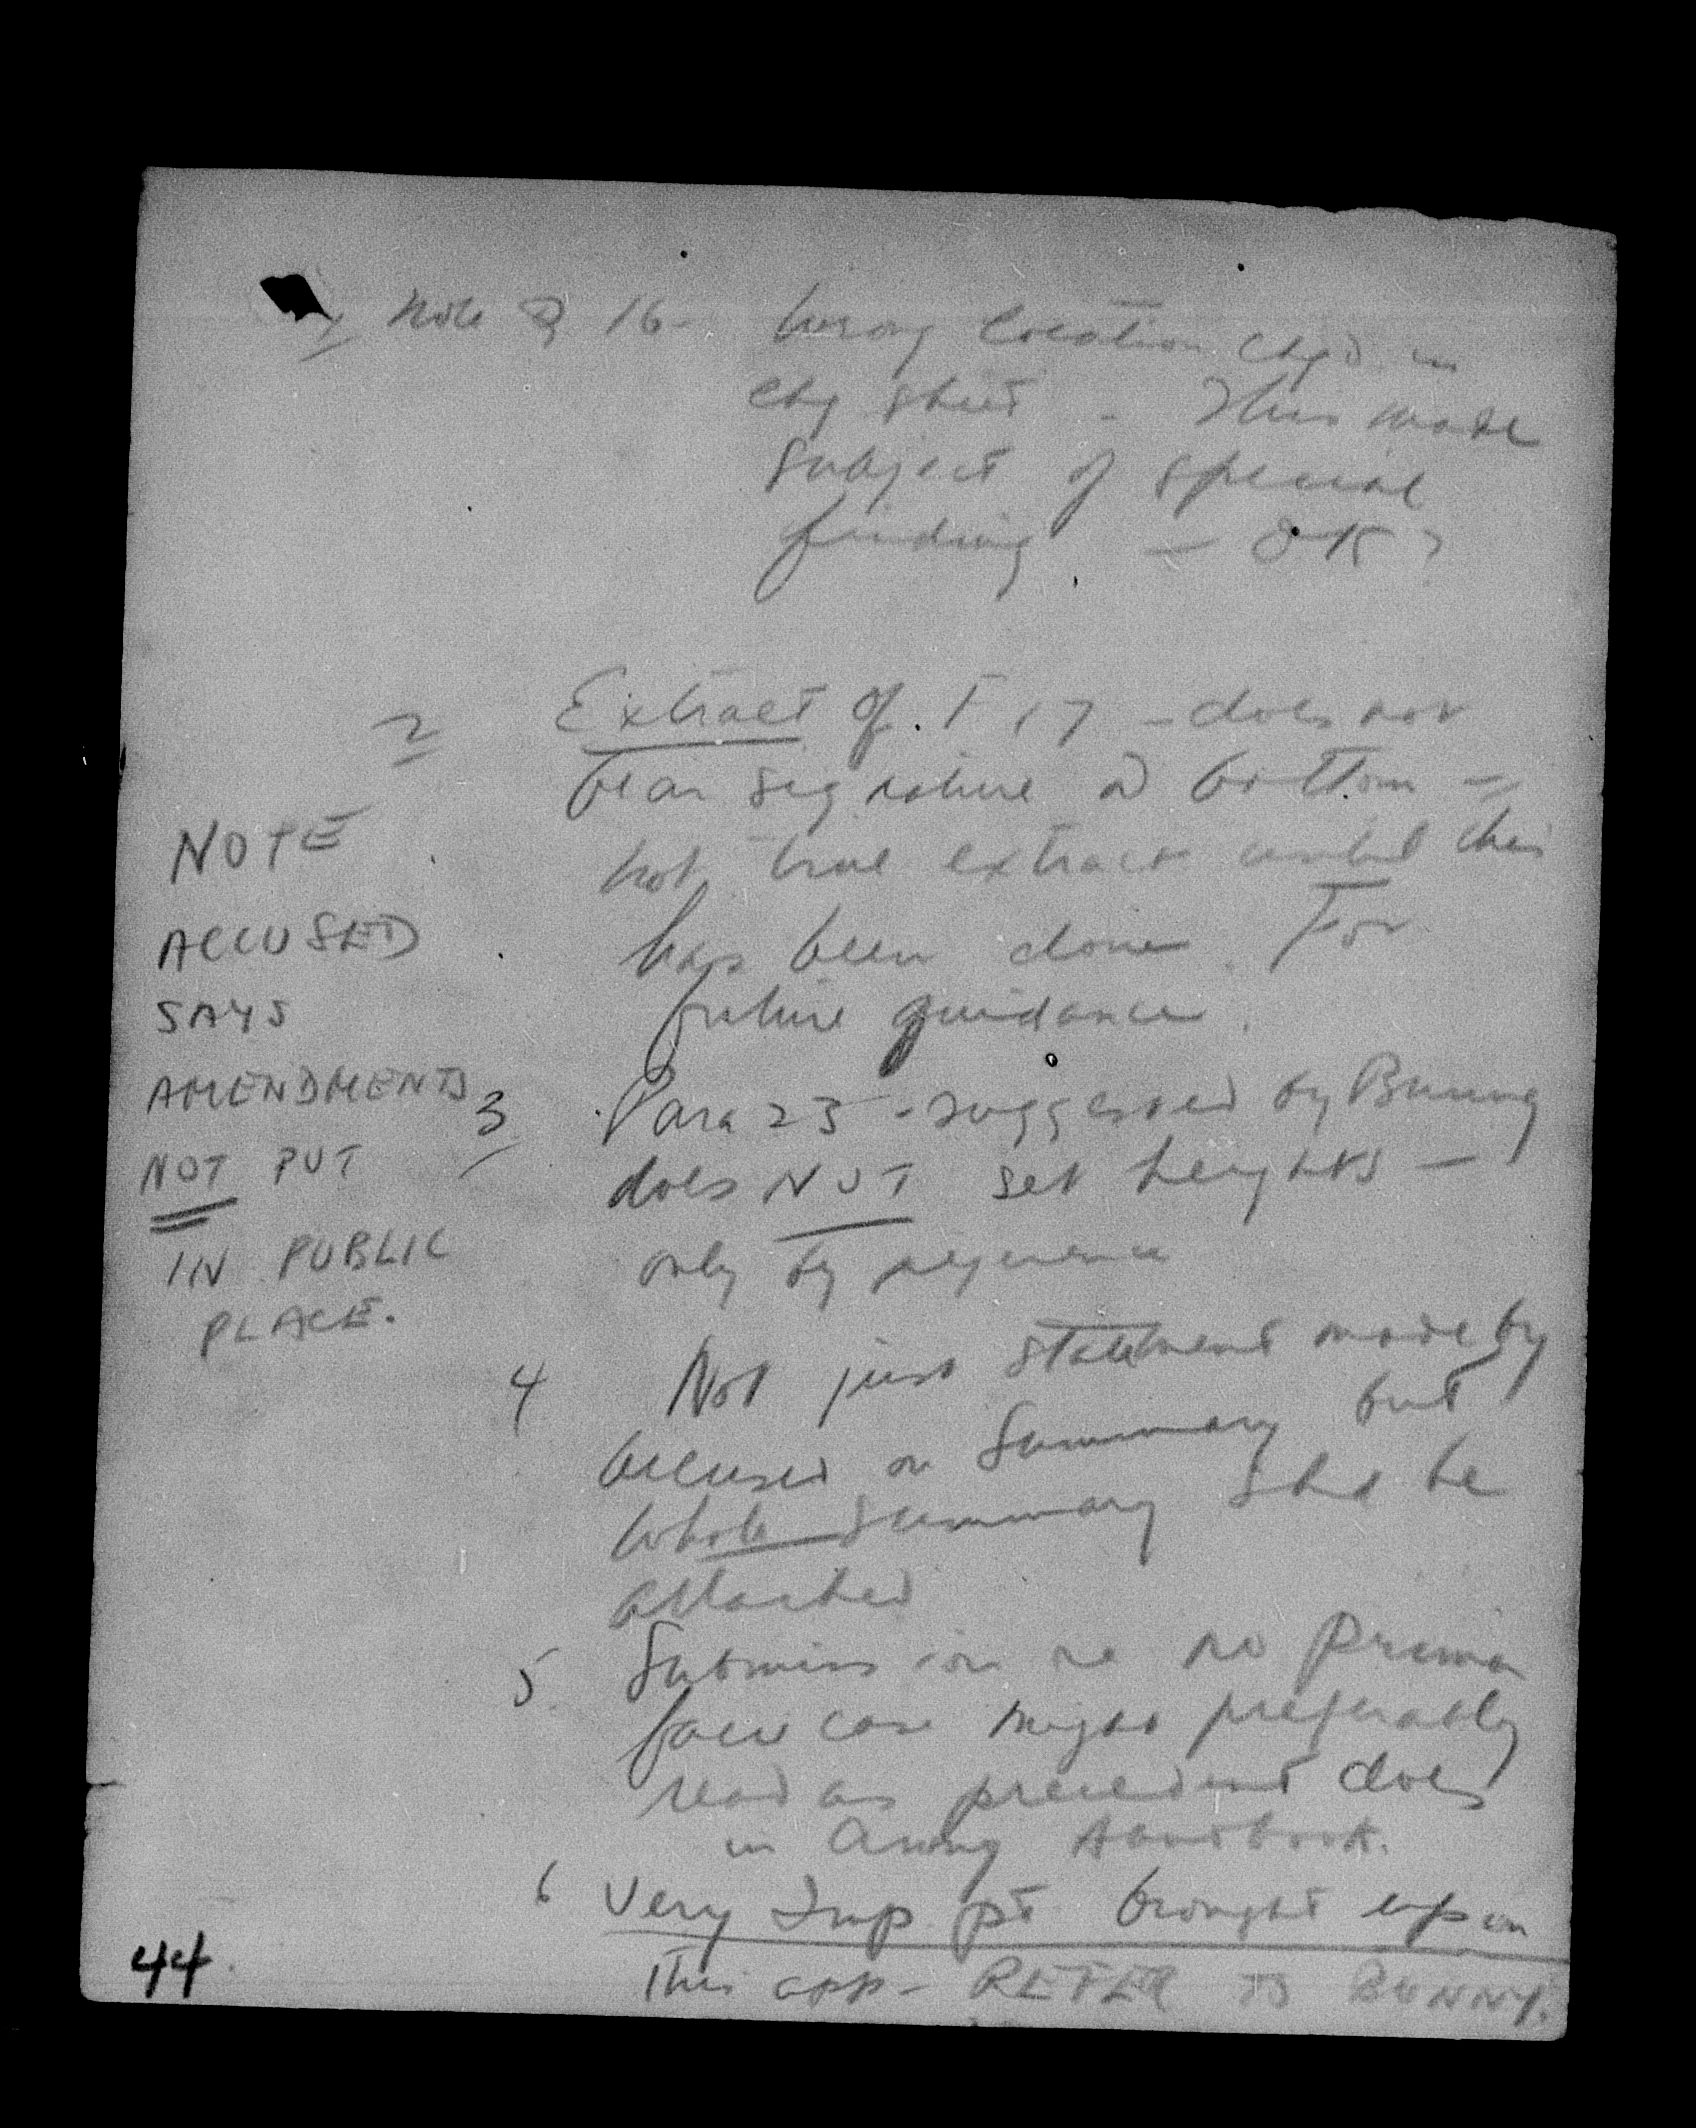 1 Note Q 16 - Wrong location chgd in
chg sheet - This made
subject of special
finding - OK?
2 Extract of F 17 - does not
bear signature at bottom -
not true extract until this
has been done. For
future guidance.
NOTE
ACCUSED
SAYS
AMENDMENTS
NOT PUT
IN PUBLIC
PLACE.
3 Para 23 - suggested by Bunny
does NOT set heights -
only by reference
4 Not just statement made by
accused on Summary but
whole summary shd be
attached
5 Submission re no prima
facie case might preferably
read as precedent does
in Army Handbook.
6 Very Imp pt brought up on
This app - REFER TO BUNNY.
44.